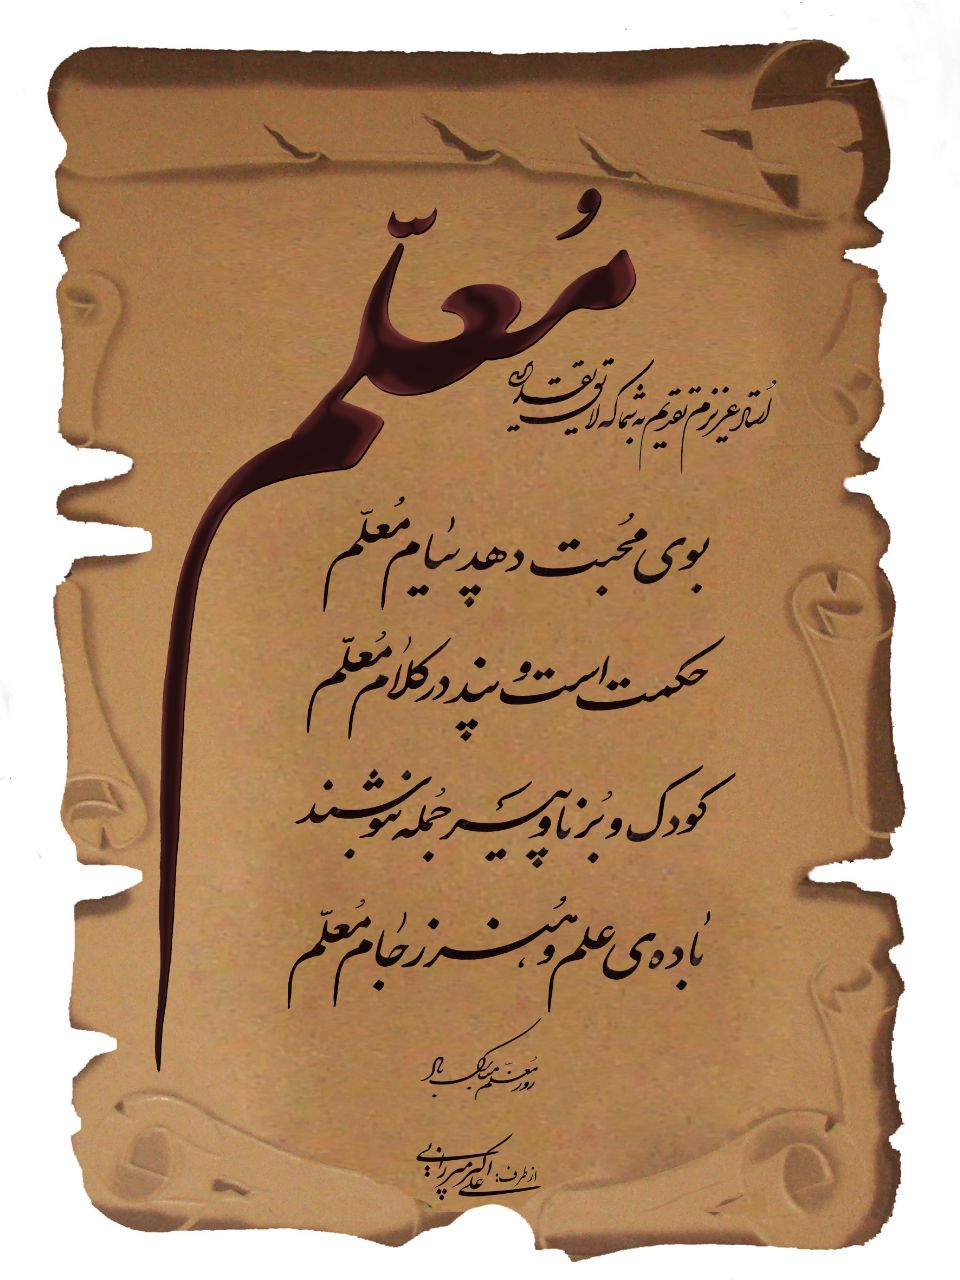 مُعلّم
اُستاد عزیزم تقدیم به شما که لایق تقدیرید
بوی مُحبت دهد پیام مُعلّم
حکمت است و پند در کلام مُعلّم
کودک و بُرنا و پیر جُمله بنوشند
باده‌ی علم و هُنر ز جام مُعلّم
روز مُعلّم مبارک باد
از طرف: علی اکبر میرزایی